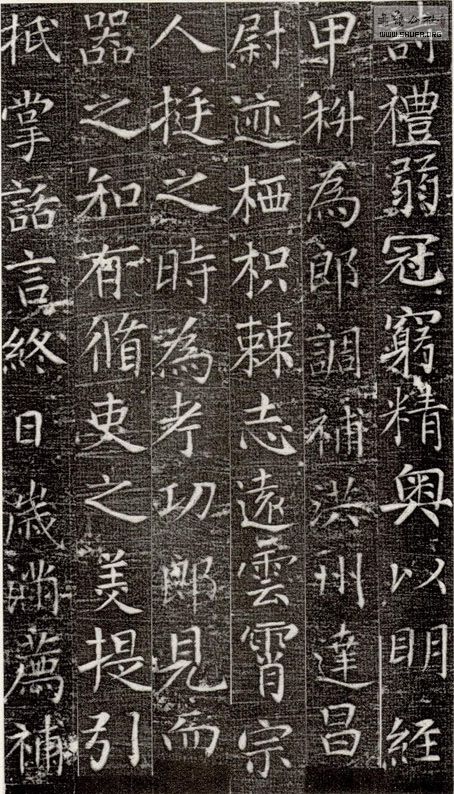 WWW.SHUFA.ORG
詩禮弱冠窮精奧以明經
甲科為郎調補洪州建昌
尉迹栖枳棘志遠雲霄宗
人挺之時為考功郎見而
器之知有循吏之美提引
抵掌話言終日歲滿薦補